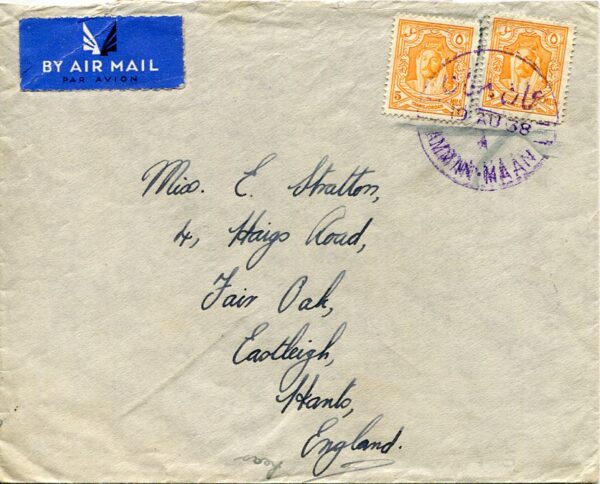 BY AIR MAIL
PAR AVION
AU 38
AMMAN-MAAN
Miss. E. Stratton,
4, Haigs Road,
Fair Oak,
Eastleigh,
Hants,
England.